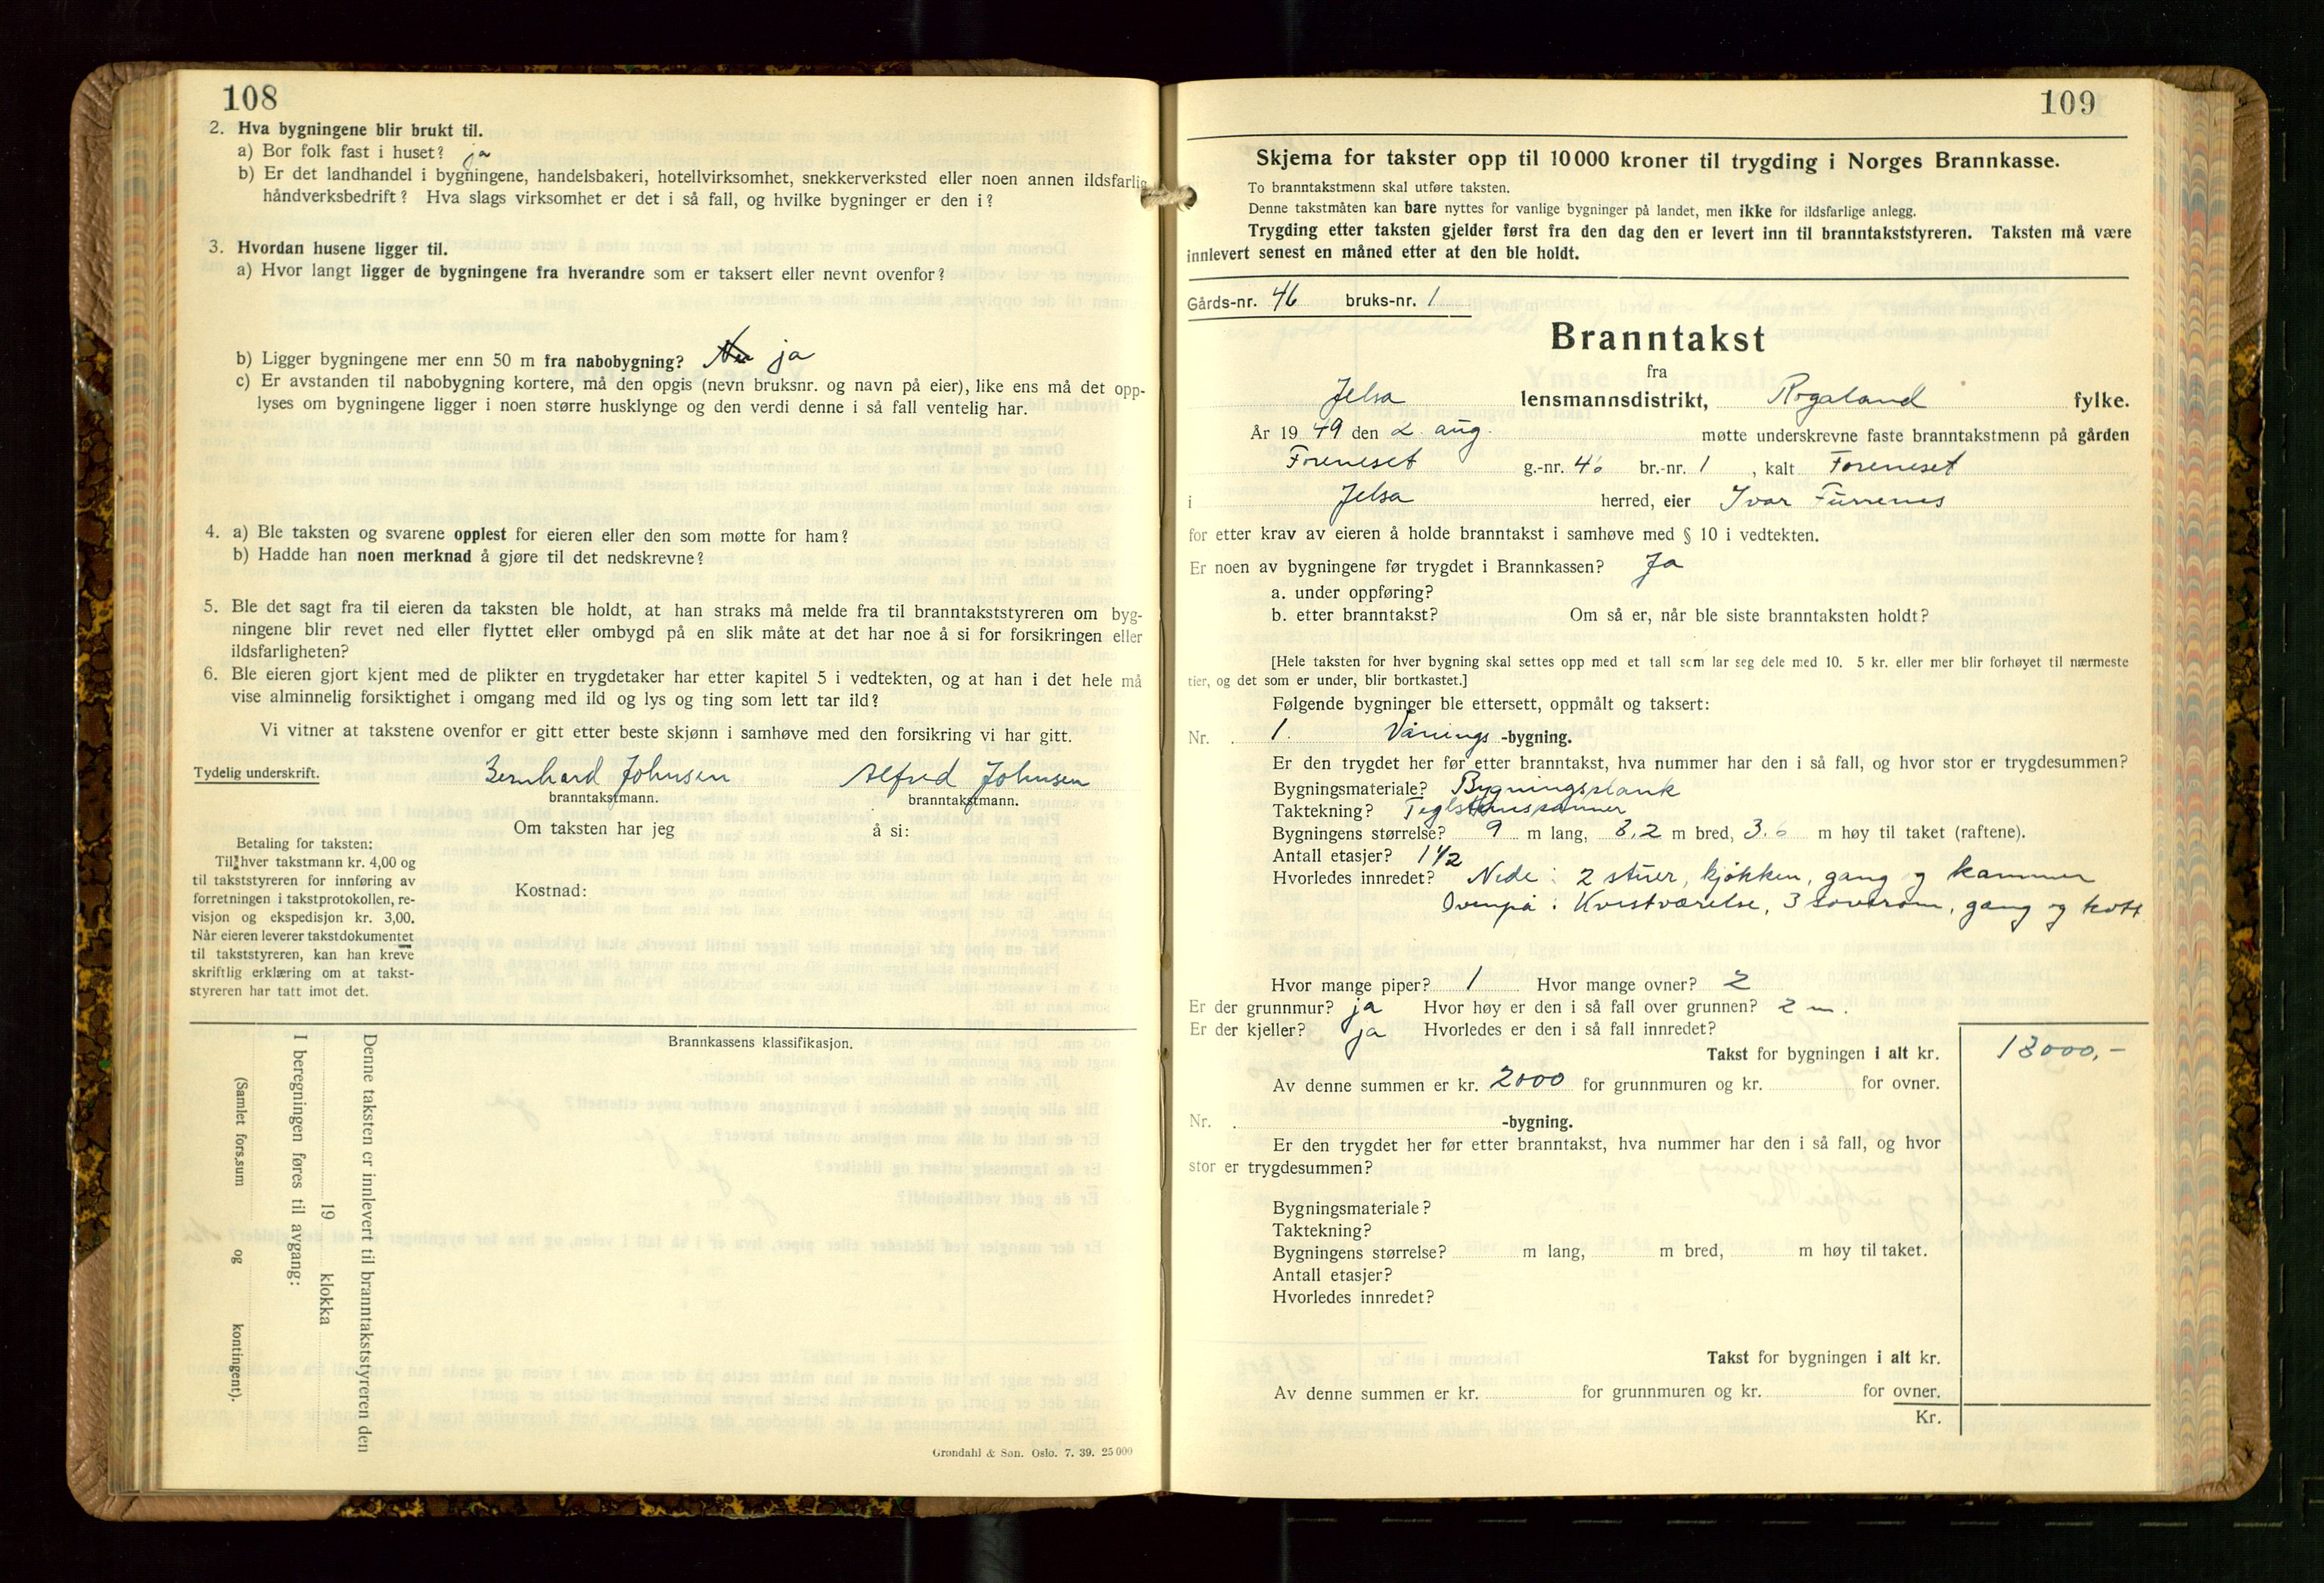 108
2. Hva bygningene blir brukt til.
a) Bor folk fast i huset? ja
b) Er det landhandel i bygningene, handelsbakeri, hotellvirksomhet, snekkerverksted eller noen annen ildsfarlig
håndverksbedrift? Hva slags virksomhet er det i så fall, og hvilke bygninger er den i?
3. Hvordan husene ligger til.
a) Hvor langt ligger de bygningene fra hverandre som er taksert eller nevnt ovenfor?
b) Ligger bygningene mer enn 50 m fra nabobygning? ja
c) Er avstanden til nabobygning kortere, må den opgis (nevn bruksnr. og navn på eier), like ens må det opp-
lyses om bygningene ligger i noen større husklynge og den verdi denne i så fall ventelig har.
4. a) Ble taksten og svarene opplest for eieren eller den som møtte for ham?
b) Hadde han noen merknad å gjøre til det nedskrevne?
5. Ble det sagt fra til eieren da taksten ble holdt, at han straks må melde fra til branntakststyreren om byg-
ningene blir revet ned eller flyttet eller ombygd på en slik måte at det har noe å si for forsikringen eller
ildsfarligheten?
6. Ble eieren gjort kjent med de plikter en trygdetaker har etter kapitel 5 i vedtekten, og at han i det hele må
vise alminnelig forsiktighet i omgang med ild og lys og ting som lett tar ild?
Vi vitner at takstene ovenfor er gitt etter beste skjønn i samhøve med den forsikring vi har gitt.
Tydelig underskrift. Bernhard Johnsen Alfred Johnsen
branntakstmann. branntakstmann.
Om taksten har jeg å si:
Betaling for taksten:
Til hver takstmann kr. 4,00 og
til takststyreren for innføring av
forretningen i takstprotokollen, re-
visjon og ekspedisjon kr. 3,00.
Når eieren leverer takstdokumentet
til takststyreren, kan han kreve
skriftlig erklæring om at takst-
styreren har tatt imot det.
Kostnad:
Brannkassens klassifikasjon.
Denne taksten er innlevert til branntakststyreren den
19 klokka
I beregningen føres til avgang:
(Samlet fors.sum og kontingent).
Grøndahl & Søn. Oslo. 7. 39. 25 000
109
Skjema for takster opp til 10 000 kroner til trygding i Norges Brannkasse.
To branntakstmenn skal utføre taksten.
Denne takstmåten kan bare nyttes for vanlige bygninger på landet, men ikke for ildsfarlige anlegg.
Trygding etter taksten gjelder først fra den dag den er levert inn til branntakststyreren. Taksten må være
innlevert senest en måned etter at den ble holdt.
Gårds-nr. 46 bruks-nr. 1
Branntakst
fra
Jelsa lensmannsdistrikt, Rogaland fylke.
År 19 49 den 2. aug. møtte underskrevne faste branntakstmenn på gården
Foreneset g.-nr. 46 br.-nr. 1, kalt Foreneset
i Jelsa herred, eier Ivar Furrenes
for etter krav av eieren å holde branntakst i samhøve med § 10 i vedtekten.
Er noen av bygningene før trygdet i Brannkassen? Ja
a. under oppføring?
b. etter branntakst? Om så er, når ble siste branntaksten holdt?
[Hele taksten for hver bygning skal settes opp med et tall som lar seg dele med 10. 5 kr. eller mer blir forhøyet til nærmeste
tier, og det som er under, blir bortkastet.]
Følgende bygninger ble ettersett, oppmålt og taksert:
Nr. 1. Vånings-bygning.
Er den trygdet her før etter branntakst, hva nummer har den i så fall, og hvor stor er trygdesummen?
Bygningsmateriale? Bygningsplank
Taktekning? Teglstenspanner
Bygningens størrelse? 9 m lang, 8,2 m bred, 3.6 m høy til taket (raftene).
Antall etasjer? 1 1/2
Hvorledes innredet? Nede: 2 stuer, kjøkken, gang og kammer
Ovenpå: Kvistværelse, 3 soverom, gang og kott
Hvor mange piper? 1 Hvor mange ovner? 2
Er der grunnmur? ja Hvor høy er den i så fall over grunnen? 2 m.
Er der kjeller? ja Hvorledes er den i så fall innredet?
Takst for bygningen i alt kr. 13000,-
Av denne summen er kr. 2000 for grunnmuren og kr. for ovner.
Nr. -bygning.
Er den trygdet her før etter branntakst, hva nummer har den i så fall, og hvor
stor er trygdesummen?
Bygningsmateriale?
Taktekning?
Bygningens størrelse? m lang, m bred, m høy til taket.
Antall etasjer?
Hvorledes innredet?
Takst for bygningen i alt kr.
Av denne summen er kr. for grunnmuren og kr. for ovner.
Kr.